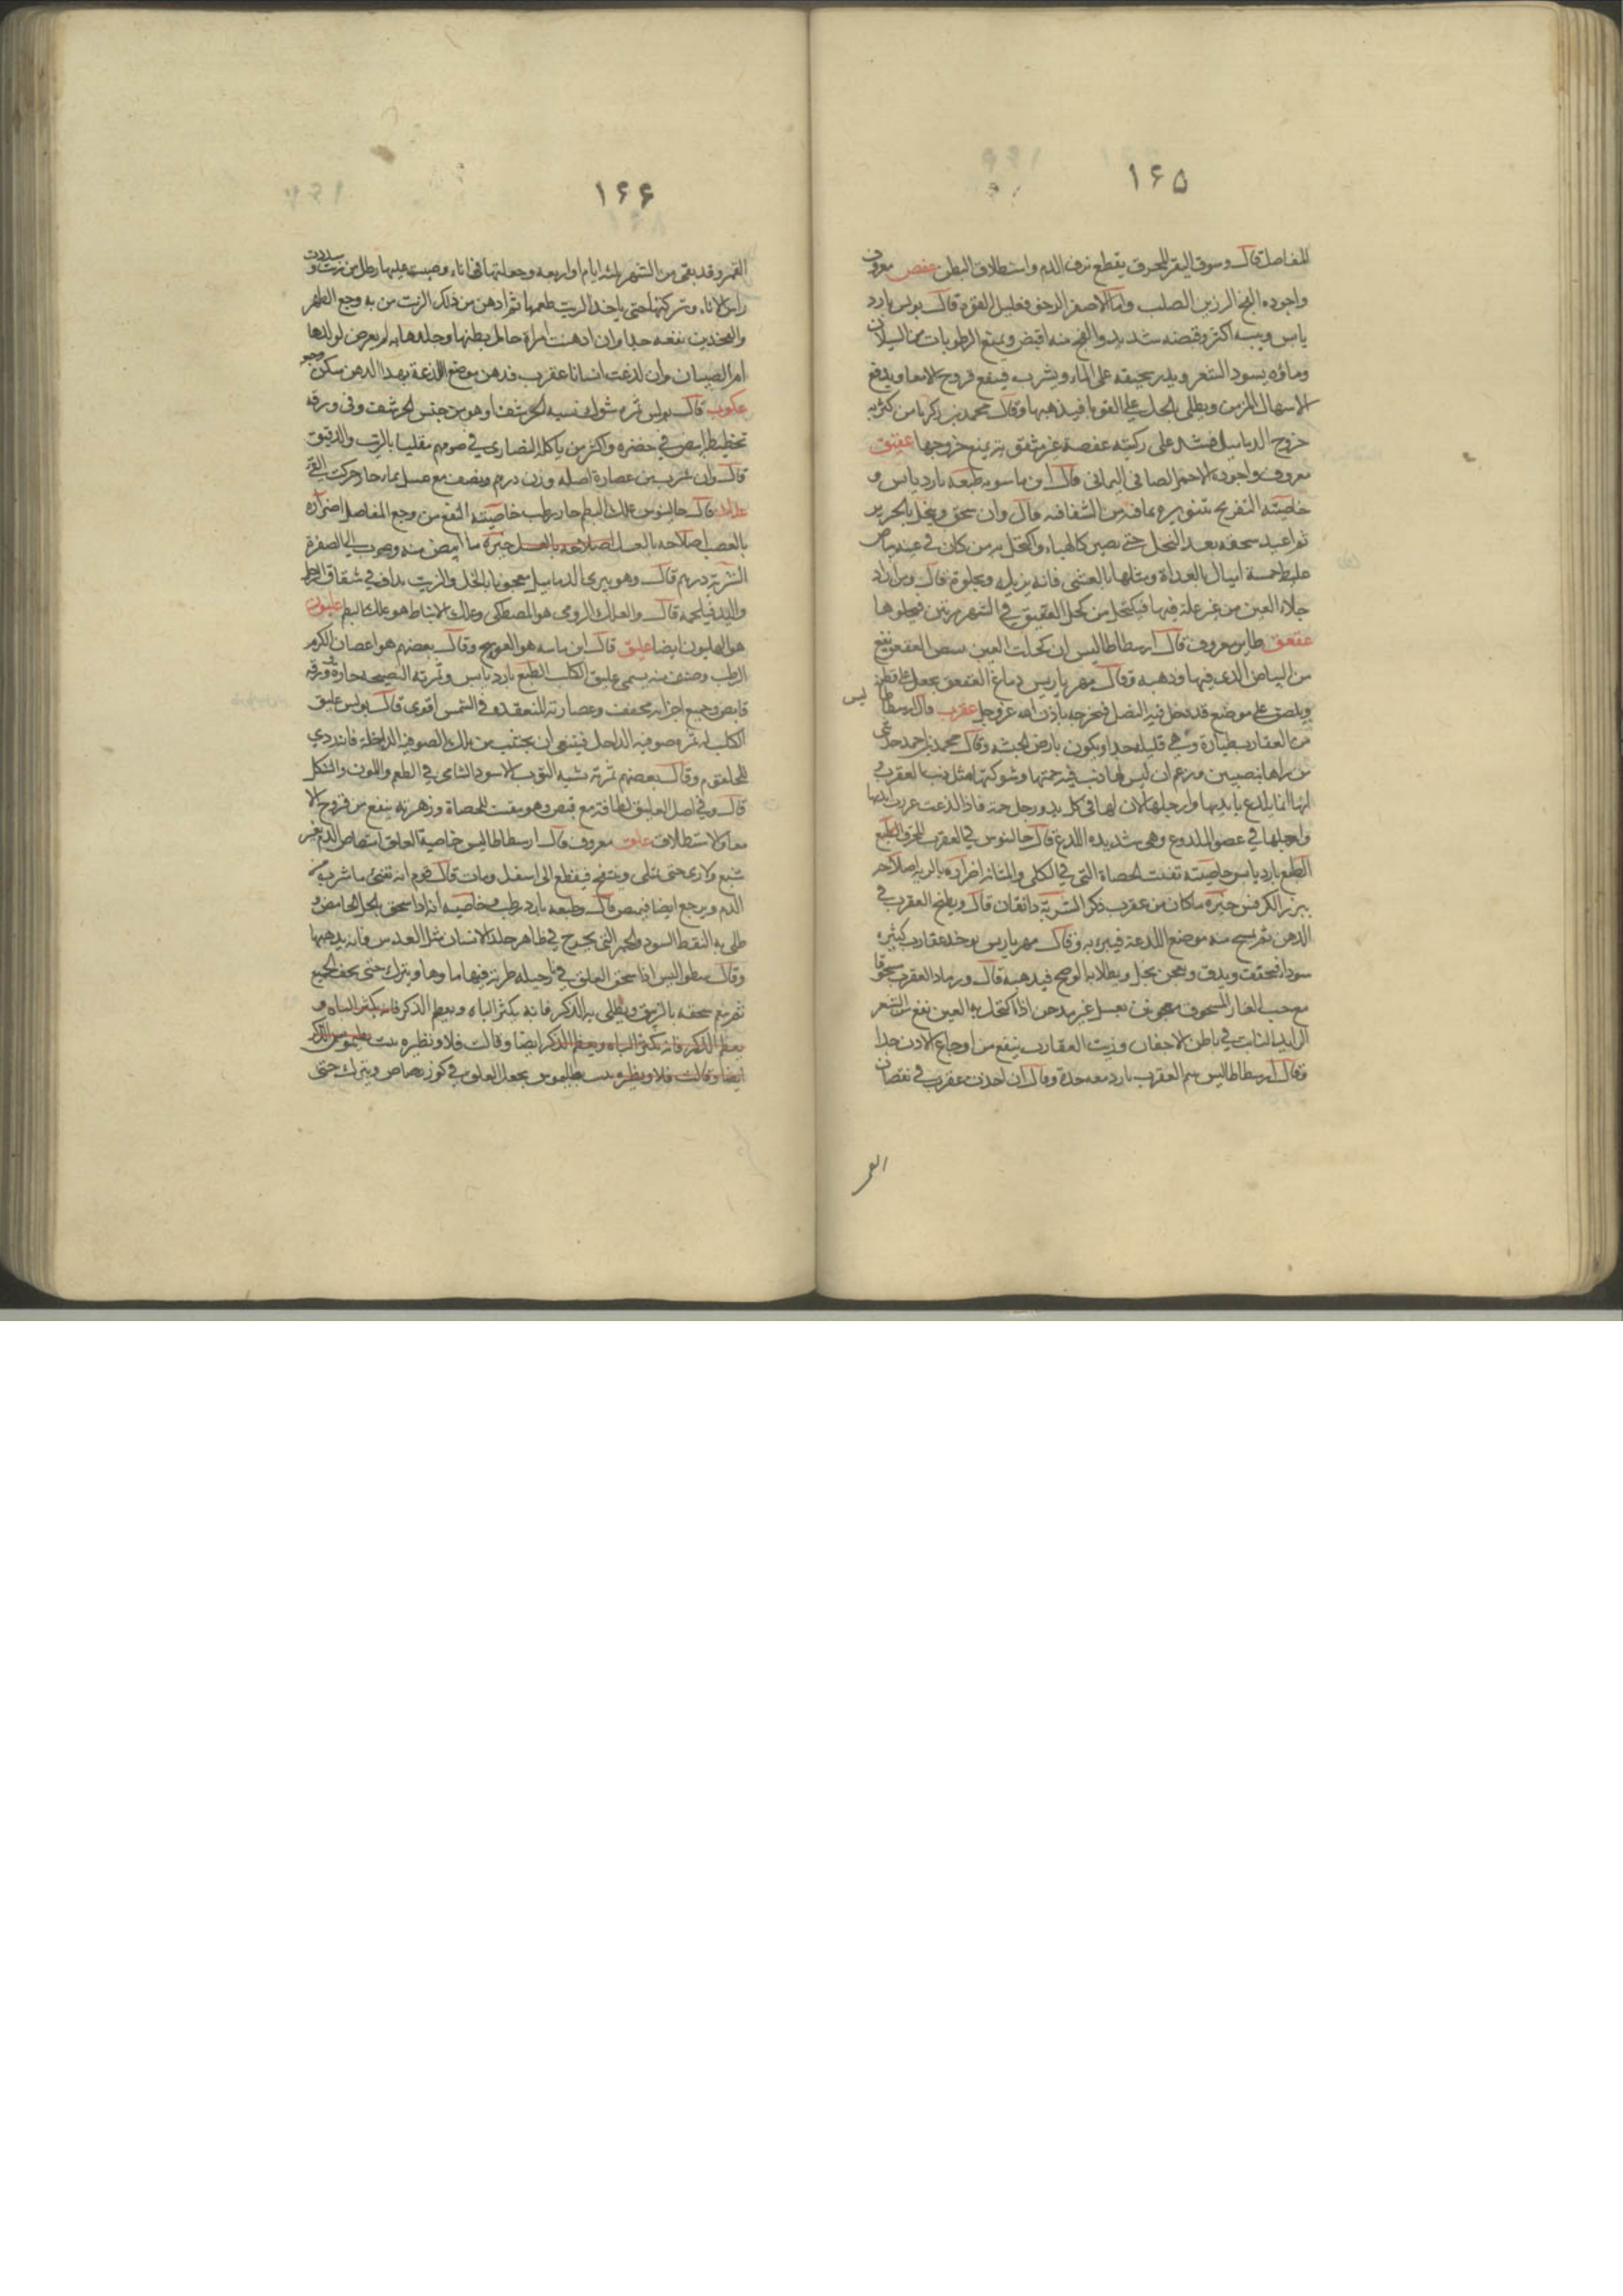 ١٦٥
المفاصل قال وسوق البقر المحرق يقطع نزف الدم واستطلاق البطن عفص معروف
واجوده الفج الرزين الصلب واما الاصفر الرخو فقليل القوة قال بولس بارد
يابس ويبسه اكثر وقبضه شديد والفج منه اقبض ويمنع الرطوبات من السيلان
وماؤه يسود الشعر ويذر سحيقه على الماء ويشرب فينفع قروح الامعا ويدفع
الاسهال المزمن ويطلى بالخل على القوبا فيذهبها وقال محمد بن زكريا من كثر به
خروج الدماميل فشد على ركبته عفصة غير مثقوبة يمنع خروجها عقيق
معروف واجوده الاحمر الصافي اليماني قال ابن ماسويه طبعه بارد يابس و
خاصيته التفريح بتنويره بما فيه من الشفافة قال وان سحق ونخل بالحرير
ثم اعيد سحقه بعد النخل حتى يصير كالهباء واكتحل به من كان في عينه بياض
غليظ خمسة اميال بالغداة ومثلها بالعشي فانه يزيله ويجلوه قال ومن اراد
جلاء العين من غير علة فيها فيكتحل من كحل العقيق في الشهر مرتين فيجلوها
عقعق طاير معروف قال ارسطاطاليس ان كحلت العين ببيض العقعق ينفع
من البياض الذي فيها وذهبه وقال مهرياريس دماغ العقعق يجعل على قطن
ويلصق على موضع قد دخل فيه النصل فيخرجه باذن الله عز وجل عقرب قال ارسطاطاليس
من العقارب طيارة وهي قليلة جدا ويكون بارض الحبشه وقال محمد بن احمد حدثني
من راها بنصيبين وزعم ان ليس لها ذنب فيه حمتها وشوكتها مثل ذنب العقرب و
انها انما يلدغ بايديها وارجلها لان لها في كل يد ورجل حمة فاذا لذعت غرزت ايديها
وارجلها في عضو الملدوع وهي شديده اللدغ قال جالينوس في العقرب المحرق الطبع
الطبع بارد يابس خاصيته تفتت الحصاة التي في الكلى والمثانة اضراره بالرية اصلاحه
ببزر الكرفس خيره ماكان من عقرب ذكر الشربة دانقان قال ويطبخ العقرب في
الدهن ثم يمسح منه موضع اللدغة فيبرء به وقال مهرياريس يوخذ عقارب كثيره
سودا فيجفف ويدق ويعجن بخل ويطلا به الوضح فيذهبه قال ورماد العقرب سحوقا
مع حب الغار المسحوق معجونين بعسل غير مدخن اذا اكتحل به العين نفع من الشعر
الزايد النابت في باطن الاجفان وزيت العقارب ينفع من اوجاع الاذن جدا
وقال ارسطاطاليس سم العقرب بارد معه حدة وقال ان اخذت عقرب في نقصان
القمر
١٦٦
القمر وقد بقي من الشهر ثلثه ايام او اربعه وجعلتها في اناء وصببت عليها رطل من زيت وسددت
راس الاناء وتركتها حتى ياخذ الزيت طعمها ثم ادهن من ذلك الزيت من به وجع الظهر
والفخذين نفعه جدا وان ادهنت امراة حامل بطنها وجلدها به لم يعرض لولدها
ام الصبيان وان لدغت انسانا عقرب فدهن موضع اللذعة بهذا الدهن سكن وجعه
عكوب قال بولس ثمره شوك نسيه الحرشف وهو من جنس الحرشف وفي ورقه
تخطيط ابيض في خضره واكثر من ياكله النصارى في صومهم مقليا بالزيت والدقيق
قال وان شرب من عصارة اصله وزن درهم ونصف مع عسل بماء حار حركت القئ
علك قال جالينوس علك البطم حار رطب خاصيته النفع من وجع المفاصل اضراره
بالعصب اصلاحه بالعسل اصلاحه بالعسل خيره ما ابيض منه وضرب الى الصفرة
الشربة درهم قال وهو يبرى الدماميل معجونا بالخل والزيت يذاف في شقاق الرجل
واليد فيلحمه قال والعلك الرومي هو المصطكى وعلك الانباط هو علك البطم عليون
هو الهليون ايضا عليق قال ابن ماسه هو العوسج وقال بعضهم هو اغصان الكرم
الرطب وصنف منه يسمى عليق الكلب الطبع بارد يابس وثمرته النضيجه حارة وورقه
قابض وجميع اجزائه مجفف وعصارته المنعقده في الشمس اقوى قال بولس عليق
الكلب له ثمره صوفيه الداخل فينبغي ان يجتنب من تلك الصوفية الداخلة فانه ردي
للحلقوم وقال بعضهم ثمرته شبه التوت الاسود الشامي في الطعم واللون والشكل
قال وفي اصل العليق لطافة مع قبض وهو يفتت الحصاة وزهرته ينفع من قروح الا
معا والاستطلاق علق معروف قال ارسطاطاليس خاصية العلق امتصاص الدم من غير
شبع ولا رى حتى يمتلى وينتفخ فينقطع الى اسفل ومات قال قوم انه تقيئ ما شرب من
الدم ويرجع ايضا فيمص قال وطبعه بارد رطب وخاصيه انه اذا سحق بالخل الحامض و
طلى به النقط السود والحمر التي يخرج في ظاهر جلد الانسان مثل العدس فانه يذهبها
وقال اذا سحق العلق في نارجيله طريه فيها ماوها ويترك حتى يجف الجميع
ثم ينعم سحقه بالزيبق ويطلى به الذكر فانه يكثر الباه ويعظم الذكر فانه يكثر الباه و
يعظم الذكر فانه يكثر الباه ويعظم الذكر ايضا وقالت فلاونظيره بنت بطليموس الذكر
ايضا وقالت فلاونظيره بنت بطليموس يجعل العلق في كوز رصاص ويترك حتى